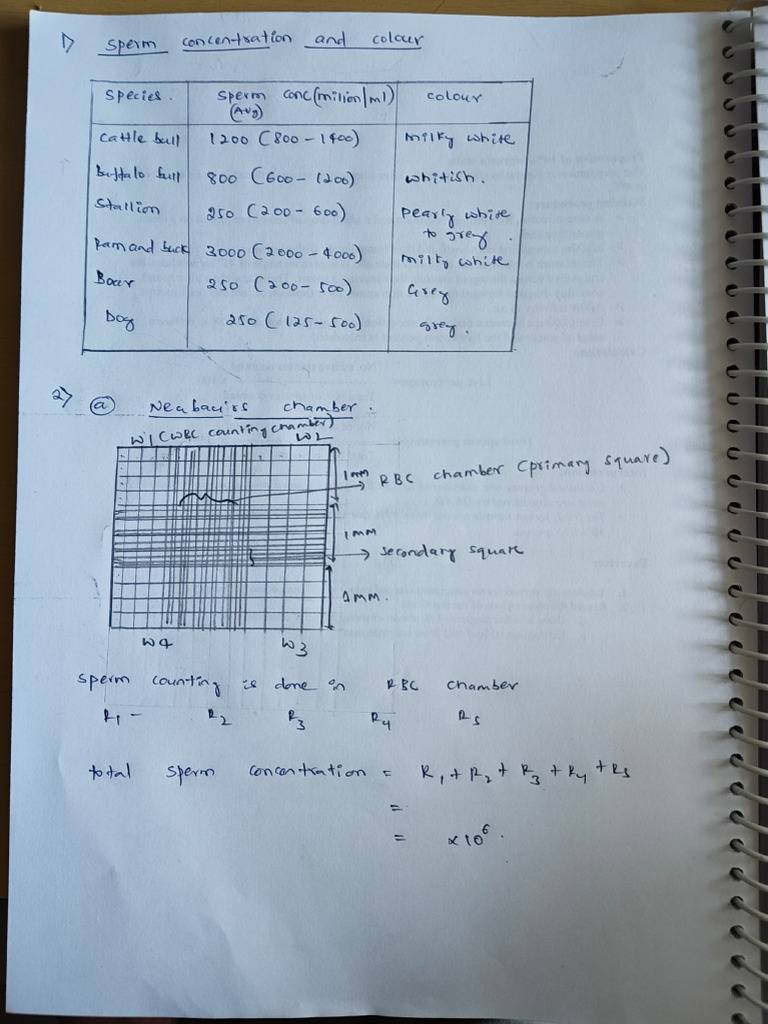 1) Sperm concentration and colour
Species. Sperm conc (milion/ml) colour
(Avg)
Cattle bull 1200 (800 - 1400) milky white
Buffalo bull 800 (600 - 1200) whitish.
Stallion 250 (200 - 600) pearly white
to grey.
Ram and buck 3000 (2000 - 4000) milky white
Boar 250 (200 - 500) Grey
Dog 250 (125 - 500) grey.
2) (a) Neubauirs chamber.
W1 (WBC counting chamber) W2
1mm RBC chamber (primary square)
1mm
secondary square
1mm.
W4 W3
Sperm counting is done in RBC chamber
R1 - R2 R3 R4 R5
total sperm concentration = R1 + R2 + R3 + R4 + R5
=
= x 10^6.